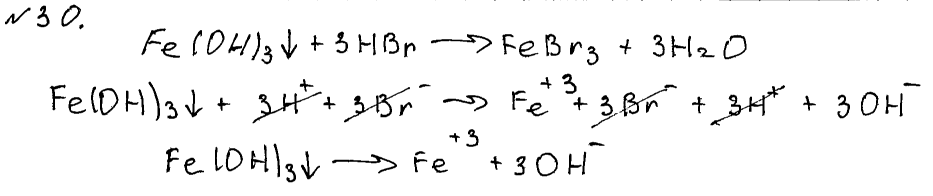 №30.
Fe(OH)₃↓ + 3HBr → FeBr₃ + 3H₂O
Fe(OH)₃↓ + 3H⁺ + 3Br⁻ → Fe⁺³ + 3Br⁻ + 3H⁺ + 3OH⁻
Fe(OH)₃↓ → Fe⁺³ + 3OH⁻